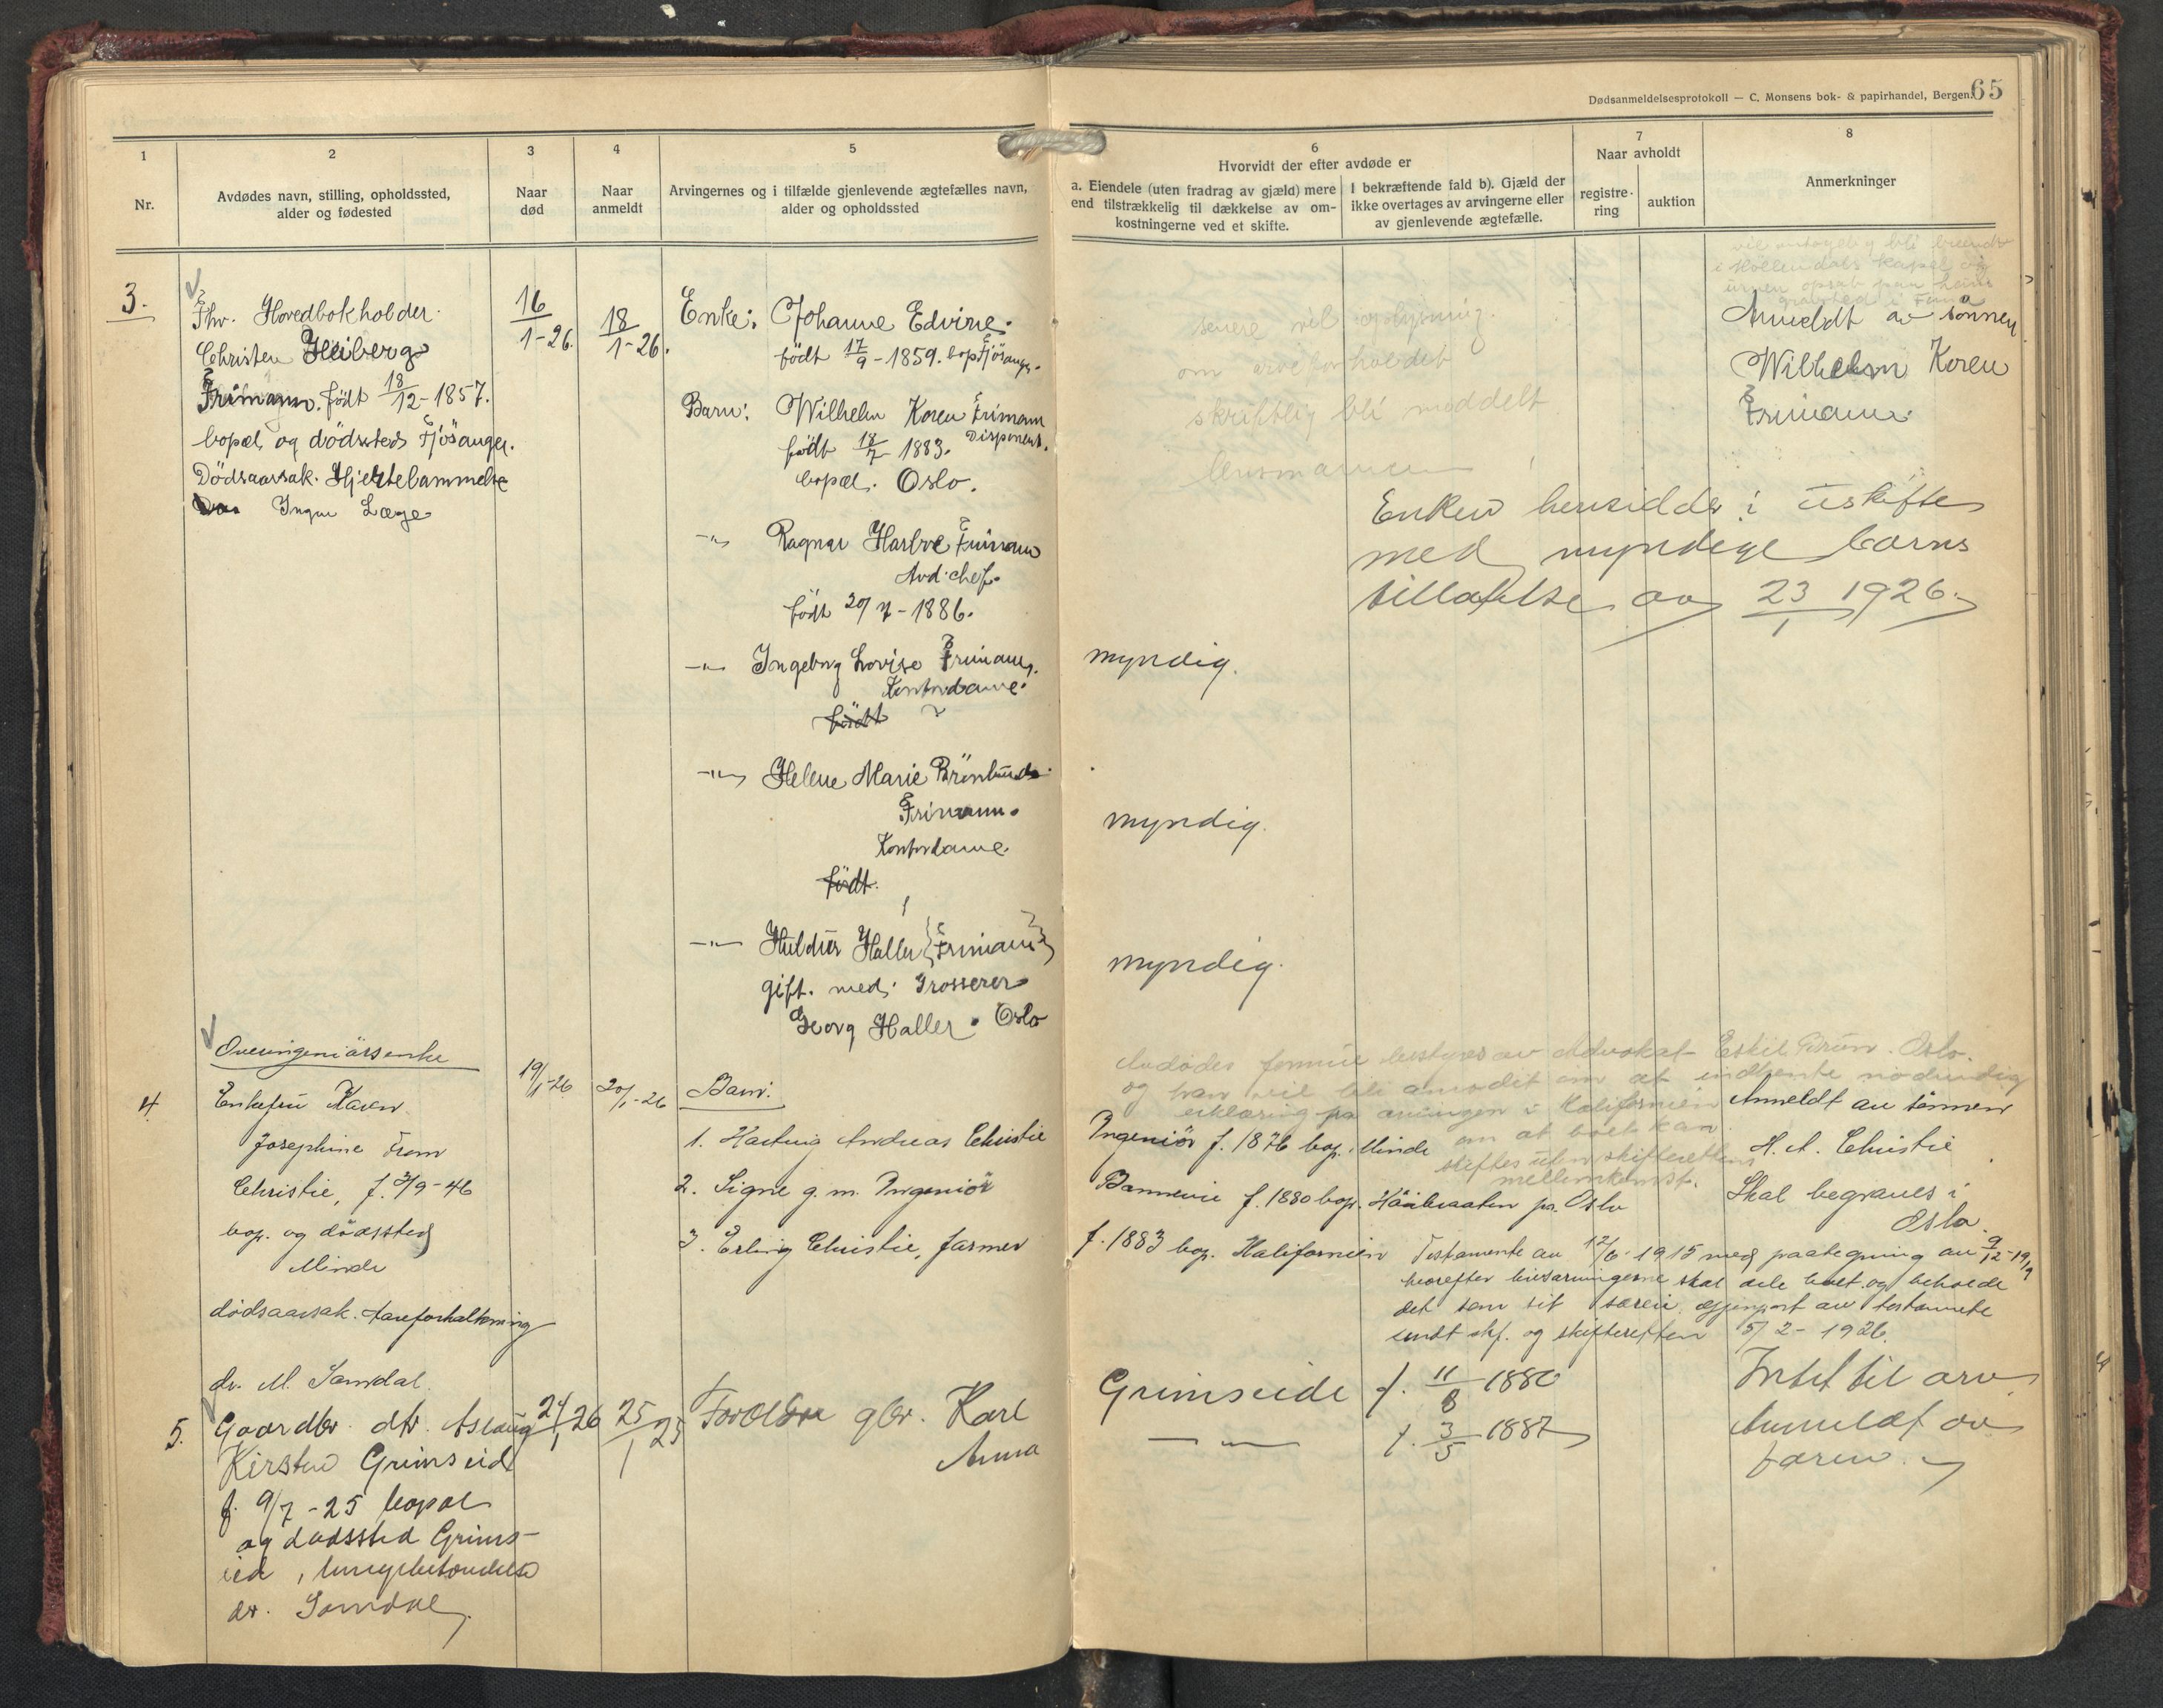 Dødsanmeldelsesprotokoll — C. Monsens bok- & papirhandel, Bergen.
65
1
Nr.
2
Avdødes navn, stilling, opholdssted,
alder og fødested
3
Naar
død
4
Naar
anmeldt
5
Arvingernes og i tilfælde gjenlevende ægtefælles navn,
alder og opholdssted
6
Hvorvidt der efter avdøde er
a. Eiendele (uten fradrag av gjæld) mere
end tilstrækkelig til dækkelse av om-
kostningerne ved et skifte.
I bekræftende fald b). Gjæld der
ikke overtages av arvingerne eller
av gjenlevende ægtefælle.
7
Naar avholdt
registre-
ring
auktion
8
Anmerkninger
3.
Fhv. Hovedbokholder.
Christen Heiberg
Frimann. født 18/12-1857.
bopæl og dödssted Fjösanger.
Dödsaarsak. Hjertelammelse
Ingen Læge
16/1-26.
18/1-26.
Enke: Johanne Edvine.
født 17/9-1859. bop Fjösanger.
Barn: Wilhelm Koren Frimann
født 18/7 1883. Disponent.
bopæl. Oslo.
-"- Ragnar Frimann
Avd. chef.
født 20/7-1886.
-"- Ingeborg Lovise Frimann.
Kontordame.
født
-"- Helene Marie
Frimann.
Kontordame.
født.
-"- Haller {Frimann}
gift. med. Grosserer
Georg Haller. Oslo
senere vil oplysning
om arveforholdet
skriftlig bli meddelt
lensmannen
myndig.
myndig.
myndig.
vil antagelig bli brændt
i Møllendals Kapel og
urnen opsat paa hans
gravsted i Fana
Anmeldt av sønnen
Wilhelm Koren
Frimann.
Enken hensidder i uskifte
med myndige barns
tillatelse av 23/1 1926.
4
Overingeniörsenke
Enkefru Karen
Josephine From
Christie, f. 3/9-46
bop. og dödssted
Minde
dödsaarsak. Aareforkalkning
dr. M. Samdal
19/1-26
20/1-26
Barn:
1. Hartvig Andreas Christie
2. Signe g. m. Ingeniör
3. Erling Christie, farmer
Avdødes formue bestyres av Advokat Eskil Brun. Oslo.
og han vil bli anmodet om at indhente nødvendig
erklæring fra arvingen i Kalifornien
om at boet kan
skiftes uten skifterettens
mellemkomst.
Ingeniör f. 1876 bop. Minde
Bannevie f. 1880 bop. pr. Oslo
f. 1883 bop. Kalifornien
Anmeldt av sönnen
H. A. Christie
Skal begraves i
Oslo.
Testamente av 12/6-1915 med paategning av 9/12-19
hvorefter livsarvingerne skal dele boet og beholde
det som sit særeie, gjenpart av testamente
sendt skf. og skifteretten 5/2-1926.
5.
Gaardbr. dtr. Aslaug
Kirsten Grimseid
f. 9/7-25 bopæl
og dødssted Grims-
eid, lungebetændelse
dr. Samdal.
24/1 26
25/1 25
Forældre gbr. Karl
Anna
Grimseide f. 11/8 1880
-"- f. 3/5 1887
Intet til arv.
Anmeldt av
faren.